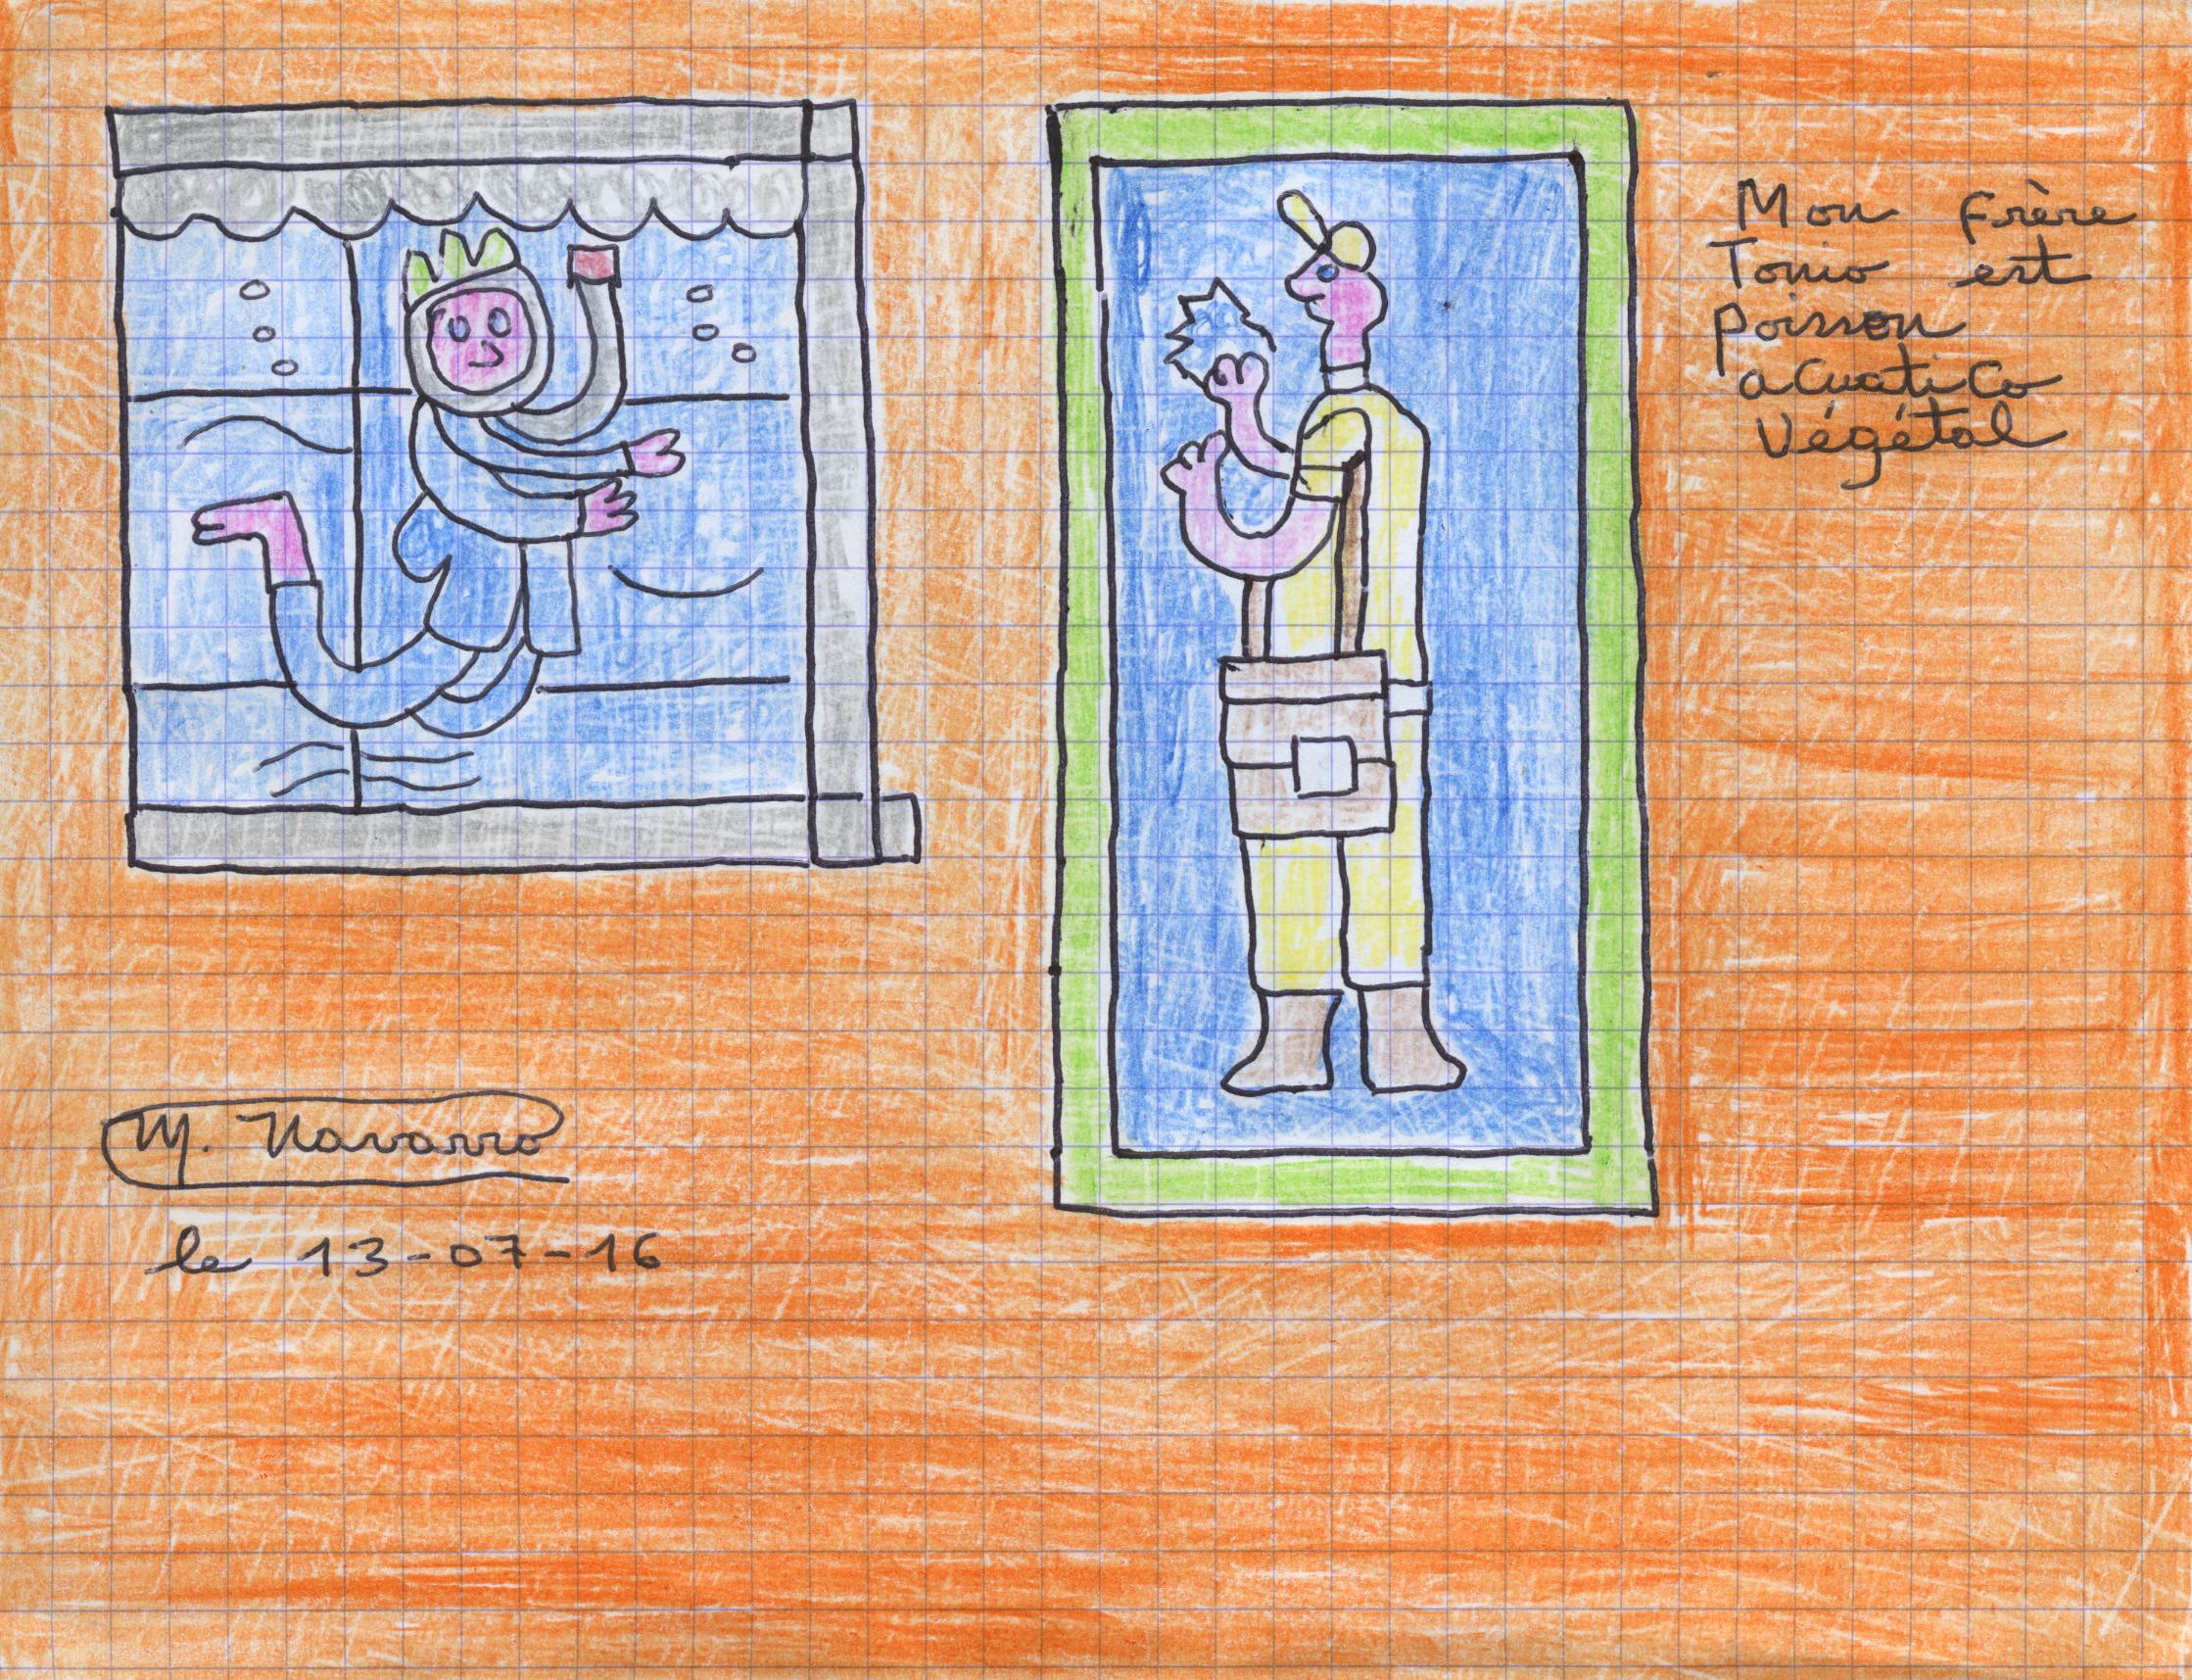 Mon frère
Tonio est
Poisson
acuatico
Végétal
M. Navarro
le 13-07-16